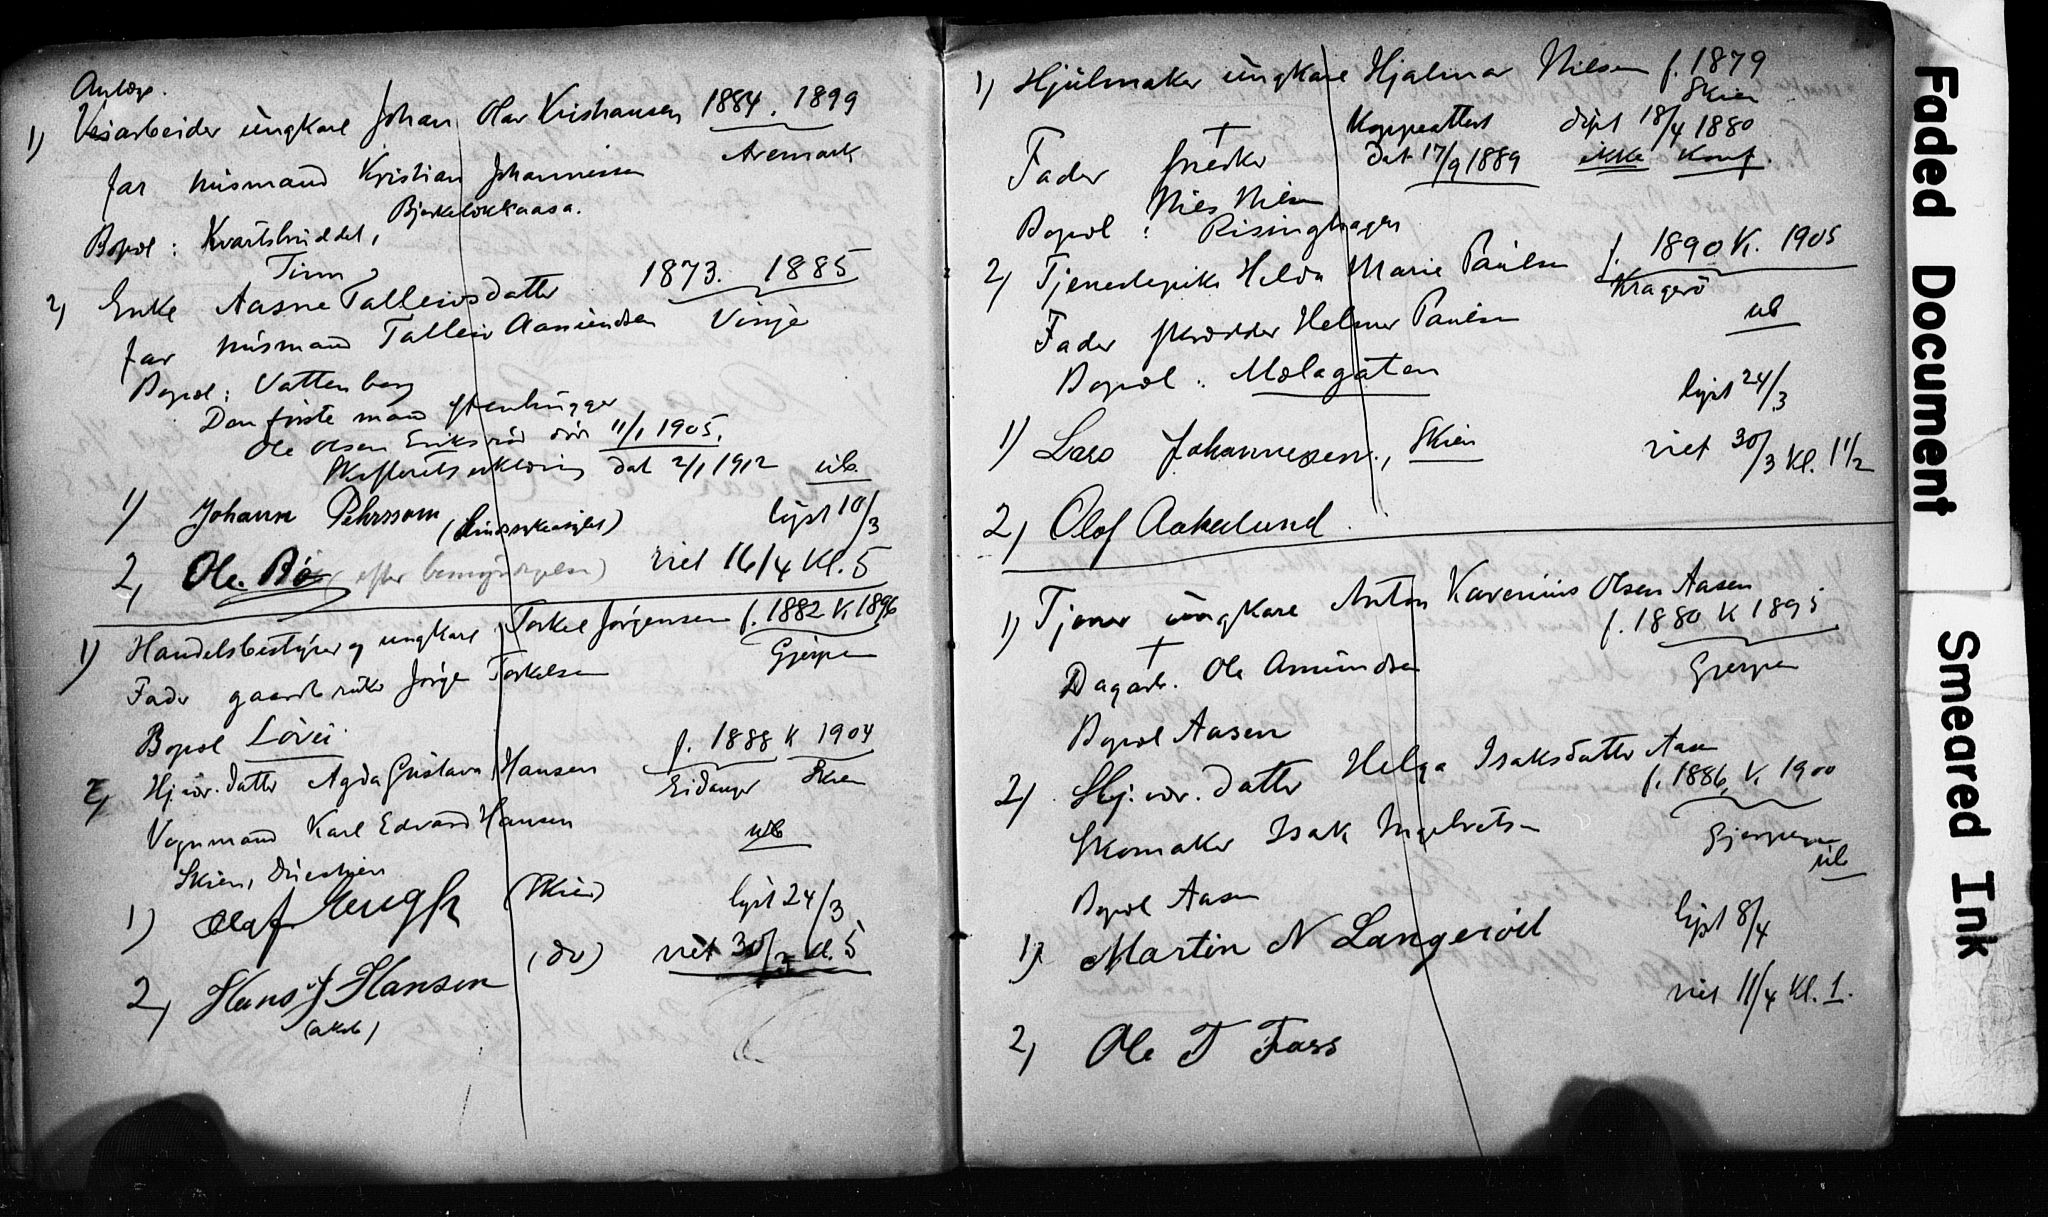 Anlægs.
1) Veiarbeider ungkarl Johan Olav Kristiansen 1884. 1899
Aremark
far husmand Kristian Johannessen
Bopæl: Kvartsbruddet, Bjerkelokkaasa.
Tinn
2) Enke Aasne Talleivsdatter 1873. 1885
far husmand Talleiv Aamundsen Vinje
Bopæl: Vattenberg
Den første mand stenhugger
Ole Olsen Eriksrød død 11/1 1905.
Skifteretserklæring dat 2/1 1912 ub.
1) Johann Pehrsson lyst 10/3
2, Ole Bø (efter bemyndigelse) viet 16/4 Kl. 5
1) Handelsbestyrer og ungkarl Torkel Jørgensen f. 1882 K. 1896
Gjerpen
Fader gaardbruker Jørgen Torkelsen
Bopæl Løvei
f. 1888 K 1904
2, Hj.vær. datter Agda Gustava Hansen Eidanger Skien
Vognmand Karl Edvard Hansen ub
Skien,
1) Olaf (Skien) lyst 24/3
2, Hans J Hansen (do) viet 30/3 kl. 5
1) Hjulmaker ungkarl Hjalmar Nilsen f. 1879
Skien
Koppeattest døpt 18/4 1880
Fader † snedker dat 17/9 1889 ikke Konf.
Nils Nilsen
Bopæl: Risinghagen
2, Tjenestepike Helda Marie Paulsen f. 1890 K. 1905
Kragerø
Fader skrædder Helmer Paulsen ub
Bopæl: Mælagaten
lyst 24/3
1) Lars Johannesen, Skien viet 30/3 Kl. 1 1/2
2, Olof Aakerlund.
1) Tjener ungkarl Anton Karenius Olsen Aasen
f. 1880 K 1895
† Dagarb. Ole Amundsen Gjerpen
Bopæl Aasen
2, Hj.vær. datter Helga Isaksdatter Aasen
f. 1886, K. 1900
Skomaker Isak Ingebretsen Gjerpen
ub
Bopæl Aasen
1) Martin N Langerød lyst 8/4
viet 11/4 Kl. 1.
2, Ole T Foss
Faded Document
Smeared Ink